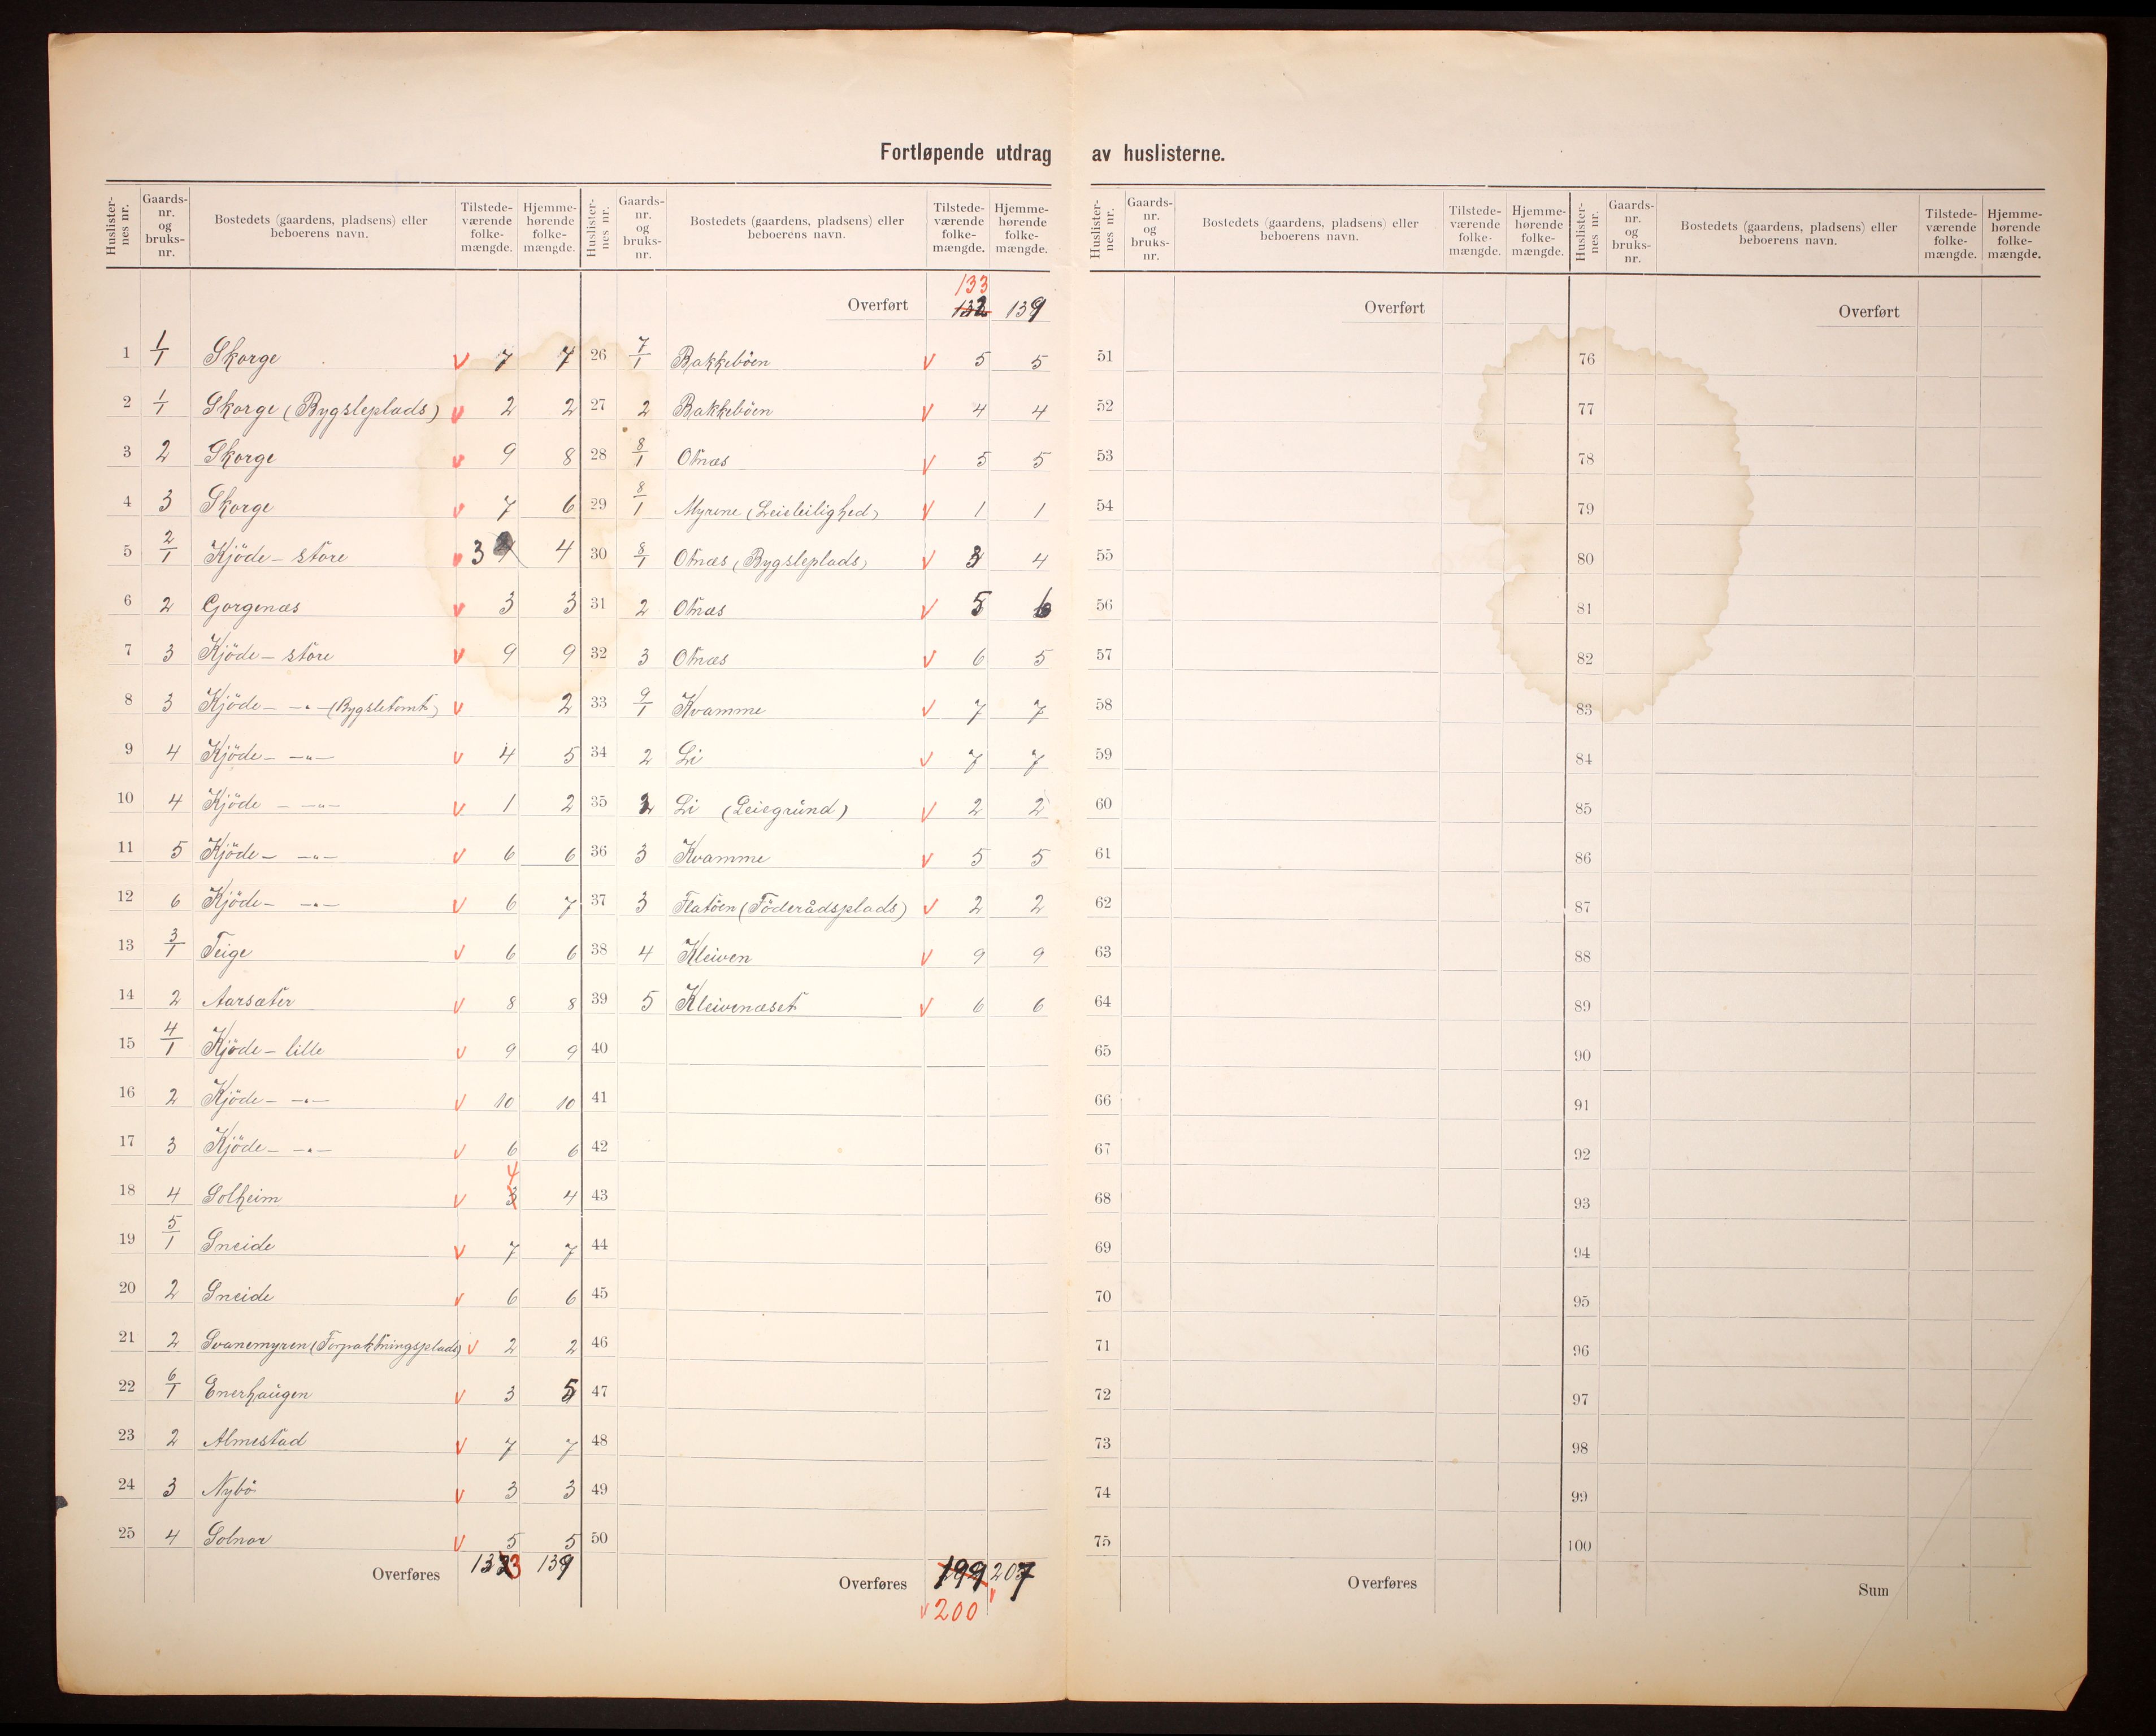 Fortløpende utdrag av huslisterne.
Huslisternes nr. Gaards-nr. og bruks-nr. Bostedets (gaardens, pladsens) eller beboerens navn. Tilstedeværende folkemængde. Hjemmehørende folkemængde.
1 1/1 Skorge v 7 7
2 1/1 Skorge (Bygsleplads) v 2 2
3 2 Skorge v 9 8
4 3 Skorge v 7 6
5 2/1 Kjöde - store v 3 4 4
6 2 Gorgenæs v 3 3
7 3 Kjöde - store v 9 9
8 3 Kjöde - -"- (Bygsletomt) v 2
9 4 Kjöde - -"- v 4 5
10 4 Kjöde - -"- v 1 2
11 5 Kjöde - -"- v 6 6
12 6 Kjöde - -"- v 6 7
13 3/1 Teige v 6 6
14 2 Aarsæter v 8 8
15 4/1 Kjöde - lille v 9 9
16 2 Kjöde - -"- v 10 10
17 3 Kjöde - -"- v 6 6
18 4 Solheim v 3 4 4
19 5/1 Sneide v 7 7
20 2 Sneide v 6 6
21 2 Svanemyren (Forpaktningsplads) v 2 2
22 6/1 Enerhaugen v 3 5
23 2 Almestad v 7 7
24 3 Nybö v 3 3
25 4 Solnor v 5 5
Overføres 133 139
Huslisternes nr. Gaards-nr. og bruks-nr. Bostedets (gaardens, pladsens) eller beboerens navn. Tilstedeværende folkemængde. Hjemmehørende folkemængde.
133
Overført 132 139
26 7/1 Bakkeböen v 5 5
27 2 Bakkeböen v 4 4
28 8/1 Otnæs v 5 5
29 8/1 Myrene (Leieleilighed) v 1 1
30 8/1 Otnæs (Bygsleplads) v 3 4
31 2 Otnæs v 5 6
32 3 Otnæs v 6 5
33 9/1 Kvamme v 7 7
34 2 Li v 7 7
35 2 Li (Leiegrund) v 2 2
36 3 Kvamme v 5 5
37 3 Flatöen (Föderådsplads) v 2 2
38 4 Kleiven v 9 9
39 5 Kleivenæset v 6 6
40
41
42
43
44
45
46
47
48
49
50
Overføres 199 207
v 200 v
Huslisternes nr. Gaards-nr. og bruks-nr. Bostedets (gaardens, pladsens) eller beboerens navn. Tilstedeværende folkemængde. Hjemmehørende folkemængde.
Overført
51
52
53
54
55
56
57
58
59
60
61
62
63
64
65
66
67
68
69
70
71
72
73
74
75
Overføres
Huslisternes nr. Gaards-nr. og bruks-nr. Bostedets (gaardens, pladsens) eller beboerens navn. Tilstedeværende folkemængde. Hjemmehørende folkemængde.
Overført
76
77
78
79
80
81
82
83
84
85
86
87
88
89
90
91
92
93
94
95
96
97
98
99
100
Sum